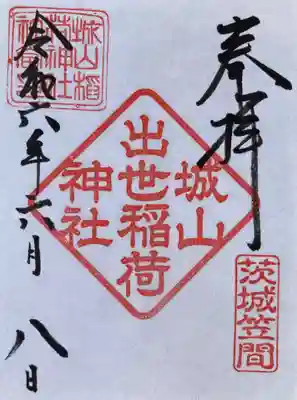 奉拝
茨城笠間
城山
出世稲荷
神社
城山稲
荷神社
令和六年六月八日